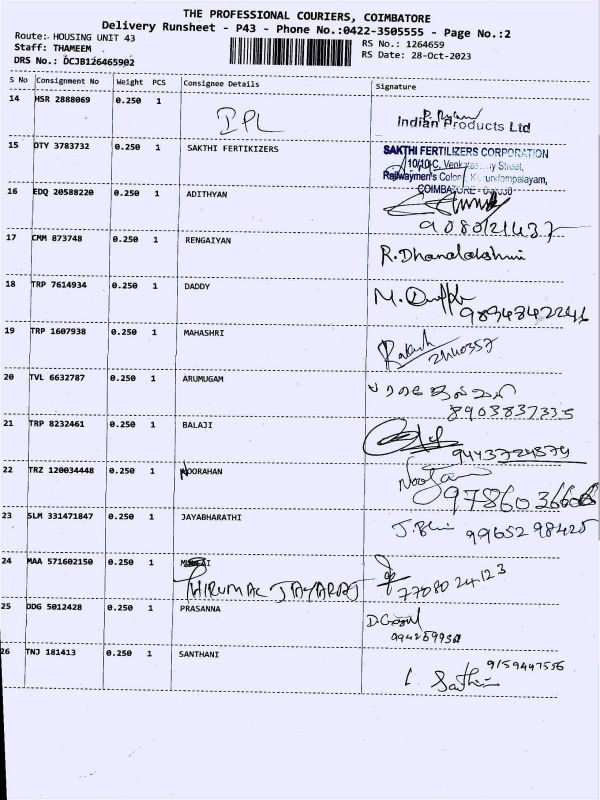 THE PROFESSIONAL COURIERS, COIMBATORE
Delivery Runsheet - P43 - Phone No.:0422-3505555 - Page No.:2
Route: HOUSING UNIT 43
RS No.: 1264659
Staff: THAMEEM
RS Date: 28-Oct-2023
DRS No.: DCJB126465902
S No Consignment No Weight PCS Consignee Details Signature
14 HSR 2888069 0.250 1
IPL
Indian Products Ltd
15 OTY 3783732 0.250 1 SAKTHI FERTIKIZERS
SAKTHI FERTILIZERS CORPORATION
10/10-C, Street,
Railwaymen's Colony,
COIMBATORE
16 EDQ 20588220 0.250 1 ADITHYAN
9080121437
17 CMM 873748 0.250 1 RENGAIYAN
R. Dhanalakshmi
18 TRP 7614934 0.250 1 DADDY
M.
19 TRP 1607938 0.250 1 MAHASHRI
20 TVL 6632787 0.250 1 ARUMUGAM
8903837335
21 TRP 8232461 0.250 1 BALAJI
9443724874
22 TRZ 120034448 0.250 1 NOORAHAN
9786036608
23 SLM 331471847 0.250 1 JAYABHARATHI
9965298425
24 MAA 571602150 0.250 1
THIRUMAL JAYARAJ
7708024123
25 DDG 5012428 0.250 1 PRASANNA
26 TNJ 181413 0.250 1 SANTHANI
9159447556